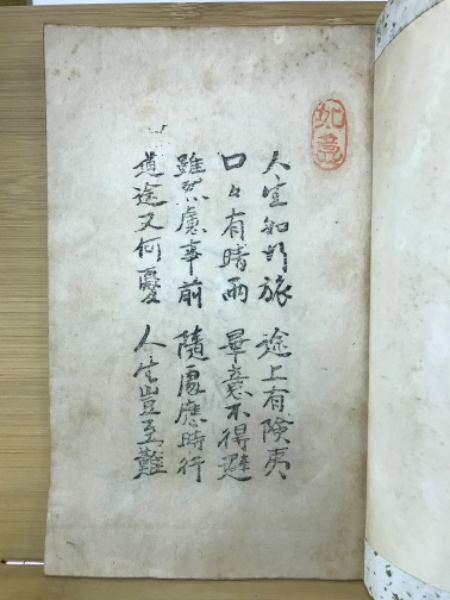 如意
人生如行旅 途上有険夷
口々有晴雨 畢意不得避
雖然慮事前 隨處應時行
道途又何憂 人生豈至難